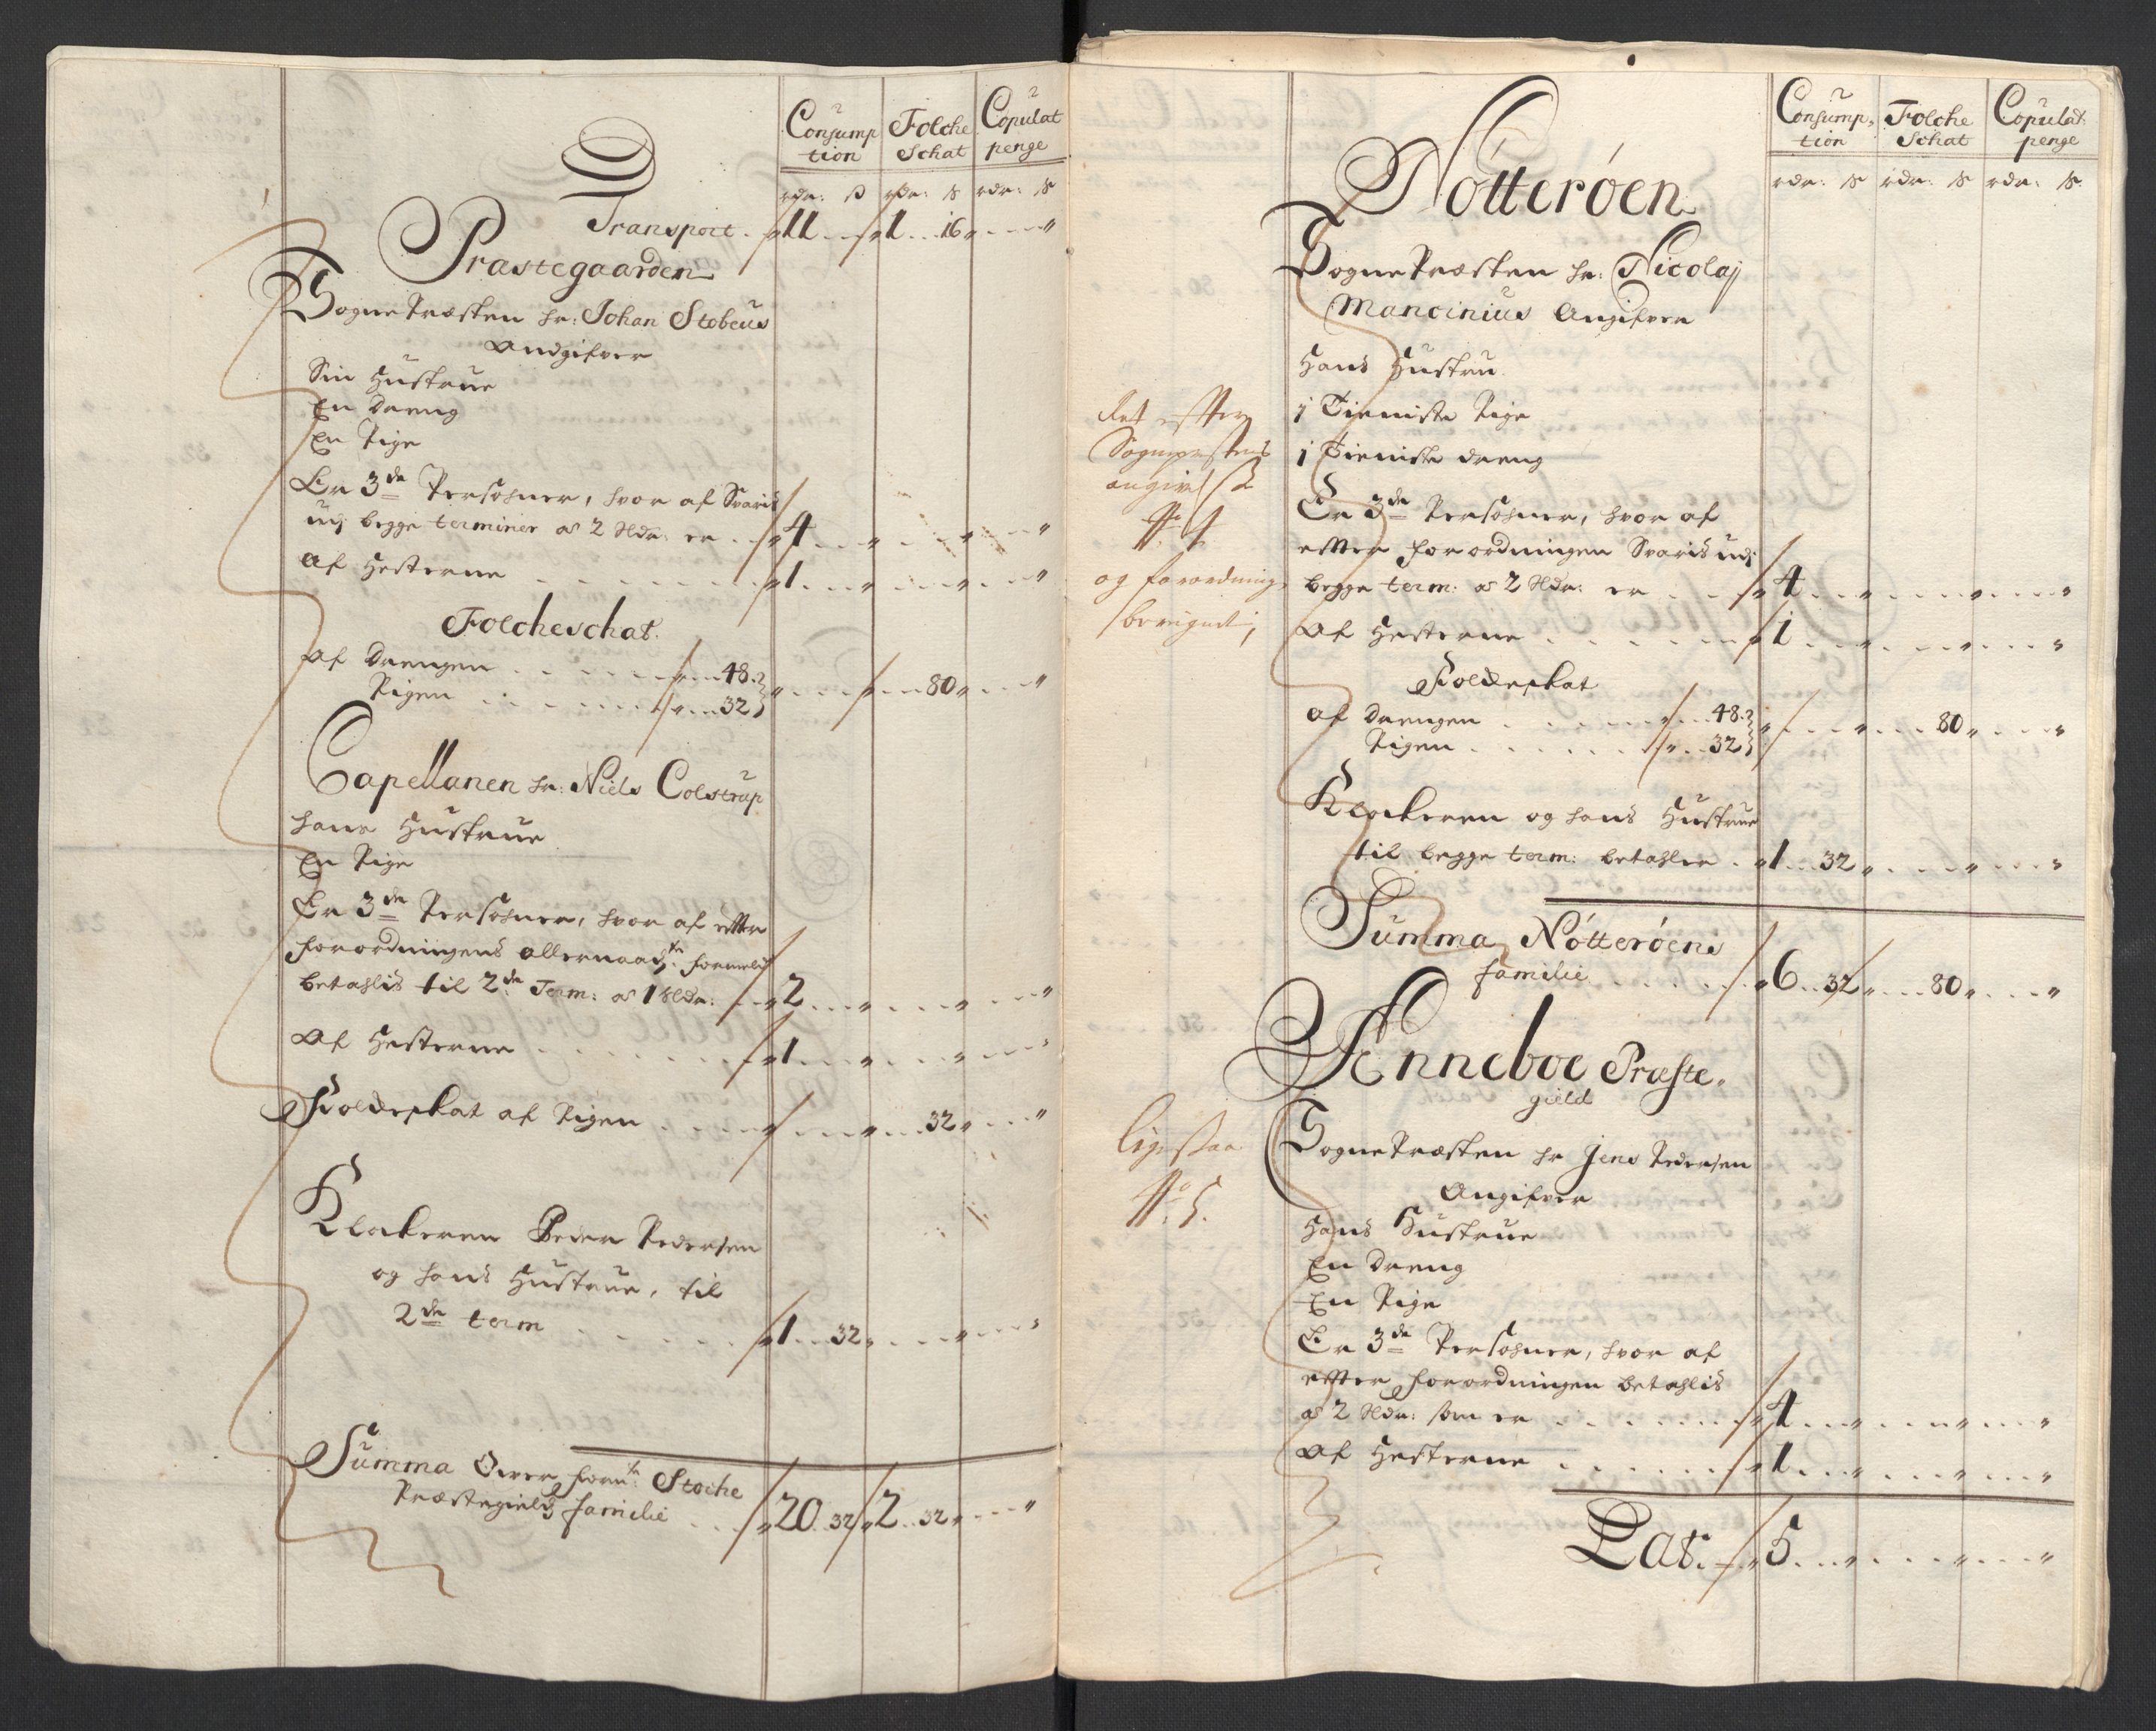 Consump
tion
Folche
Schat
Copulat
penge
rdr: ß rdr: ß rdr: ß
Transport . 11 . . 1 . . 16 . . .
Præstegaarden
SognePræsten Hr: Johan Stobeus
Andgifver
Sin Hustrue
En Dreng
En Pige
Er 3de Persohner, hvor af Svaris
udj begge terminer a 2 Rdr: er . . 4 . . .
Af Hesterne . . . 1 . . .
Folcheschat.
Af Drengen . . . 48.
Pigen . . . 32 } . . . 80 . . .
Capellanen Hr: Niels Colstrup
hans Hustrue
En Pige
Er 3de Persohner, hvor af efter
forordningens allernaadste formeld
betahlis til 2de Term: a 1 Rdr: . . 2 . . .
Af Hesterne . . . 1 . . .
Folcheskat af Pigen . . . 32 . . .
Klockeren Peder Pedersen
og hans Hustrue, til
2de term . . . 1 . . 32 . . .
Summa Over forne Stoche
Præstegields familie . . . 20 . 32 . 2 . . 32 . . .
Consump,
tion
Folche
Schat
Copulat
penge
rdr: ß rdr: ß rdr: ß
Nótteróen
SognePræsten Hr: Nicolaj
Mancinius Angifver
Hans Hustru.
1 Tieniste Pige
1 Tieniste dreng
Er 3de Persohner, hvor af
efter forordningen Svaris udj
begge term: a 2 Rdr: er . . 4 . . .
Af Hesterne . . . 1 . . .
Folcheskat
af Drengen . . . 48.
Pigen . . . 32 } . . . 80 . . .
Klockeren og hans Hustrue
til begge term: betahler . 1 . . 32 . . .
Summa Nótteróens
familie . . . 6 . . 32 . . . 80 . . .
det efter
Sognepræstens
angivelse
No 4
og forordning
beregnet;
Anneboe Præste,
gield
SognePræsten Hr Jens Pedersen
Angifver
Hans Hustrue
En Dreng
En Pige
Er 3de Persohner, hvor af
efter forordningen betahlis
a 2 Rdr: som er . . . 4 . . .
Af Hesterne . . . 1 . . .
Lat: . 5 . . .
ligesaa
No 5.